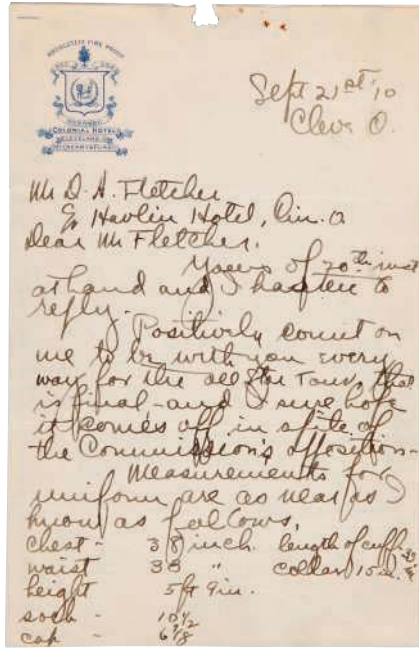 ABSOLUTELY FIRE PROOF
COLONIAL HOTEL
CLEVELAND
Sept 21st '10
Cleve O.
Mr D. A. Fletcher
c/o Havlin Hotel, Cin. O
Dear Mr Fletcher.
Yours of 20th inst
at hand and I hasten to
reply.
Positively count on
me to be with you every
way for the All Star Tour, that
is final - and I sure hope
it comes off in spite of
the Commission's opposition -
Measurements for
uniform are as near as I
know as follows,
chest - 38 inch. length of cuff
waist 33 " collar 15
height 5ft 9in.
sock - 10 1/2
cap - 6 7/8